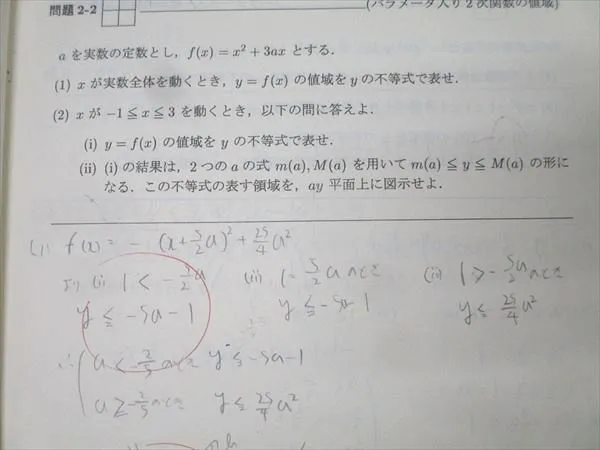 問題 2-2
(パラメータ入り2次関数の値域)
a を実数の定数とし，f(x) = x² + 3ax とする．
(1) x が実数全体を動くとき，y = f(x) の値域を y の不等式で表せ．
(2) x が −1 ≦ x ≦ 3 を動くとき，以下の問に答えよ．
(i) y = f(x) の値域を y の不等式で表せ．
(ii) (i) の結果は，2 つの a の式 m(a), M(a) を用いて m(a) ≦ y ≦ M(a) の形に
なる．この不等式の表す領域を，ay 平面上に図示せよ．
(1) f(x) = - (x + 5/2 a)² + 25/4 a²
より (i) 1 < - 5/2 a (iii) 1 - 5/2 a のとき (ii) 1 > - 5/2 a のとき
y ≦ -5a - 1 y ≦ -5a - 1 y ≦ 25/4 a²
∴ a < - 2/5 のとき y ≦ -5a - 1
a ≧ - 2/5 のとき y ≦ 25/4 a²